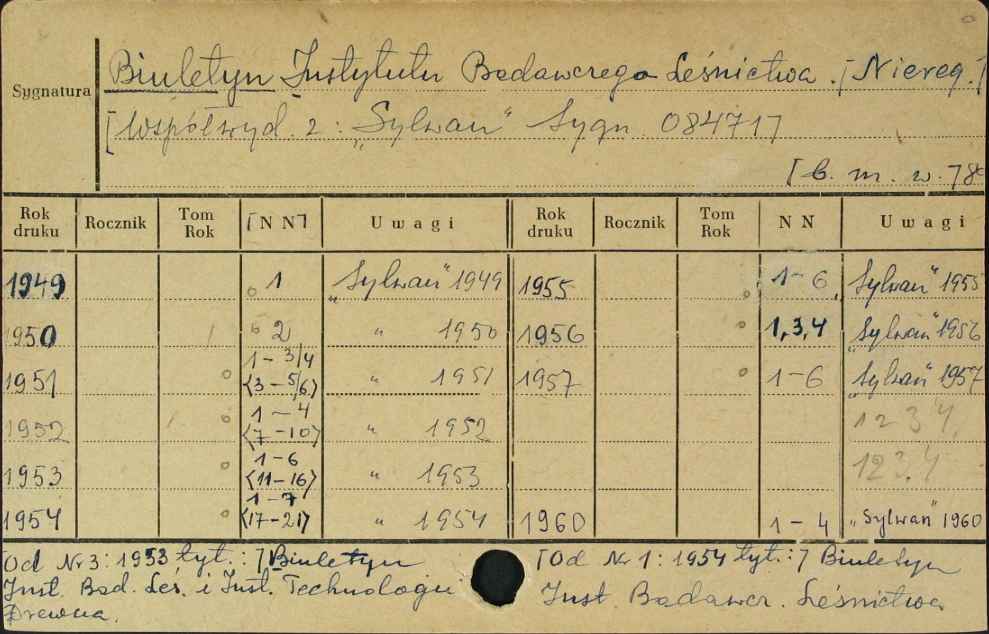 Sygnatura
Biuletyn Instytutu Badawczego Leśnictwa. [Niereg.]
[Współwyd. z: „Sylwan" Sygn. 084717]
[b. m. w. 78
Rok druku Rocznik Tom Rok [N N] Uwagi Rok druku Rocznik Tom Rok N N Uwagi
1949 1 „Sylwan" 1949 1955 1-6 „Sylwan" 1955
1950 2 " 1950 1956 1,3,4 „Sylwan" 1956
1951 1-3/4 <3-5/6> " 1951 1957 1-6 „Sylwan" 1957
1952 1-4 <7-10> " 1952 1 2 3 4
1953 1-6 <11-16> " 1953 1 2 3 4
1954 1-7 <17-21> " 1954 1960 1-4 „Sylwan" 1960
[Od Nr 3: 1953 tyt.:] Biuletyn
Inst. Bad. Leś. i Inst. Technologii
Drewna.
[Od Nr 1: 1954 tyt.:] Biuletyn
Inst. Badawcz. Leśnictwa